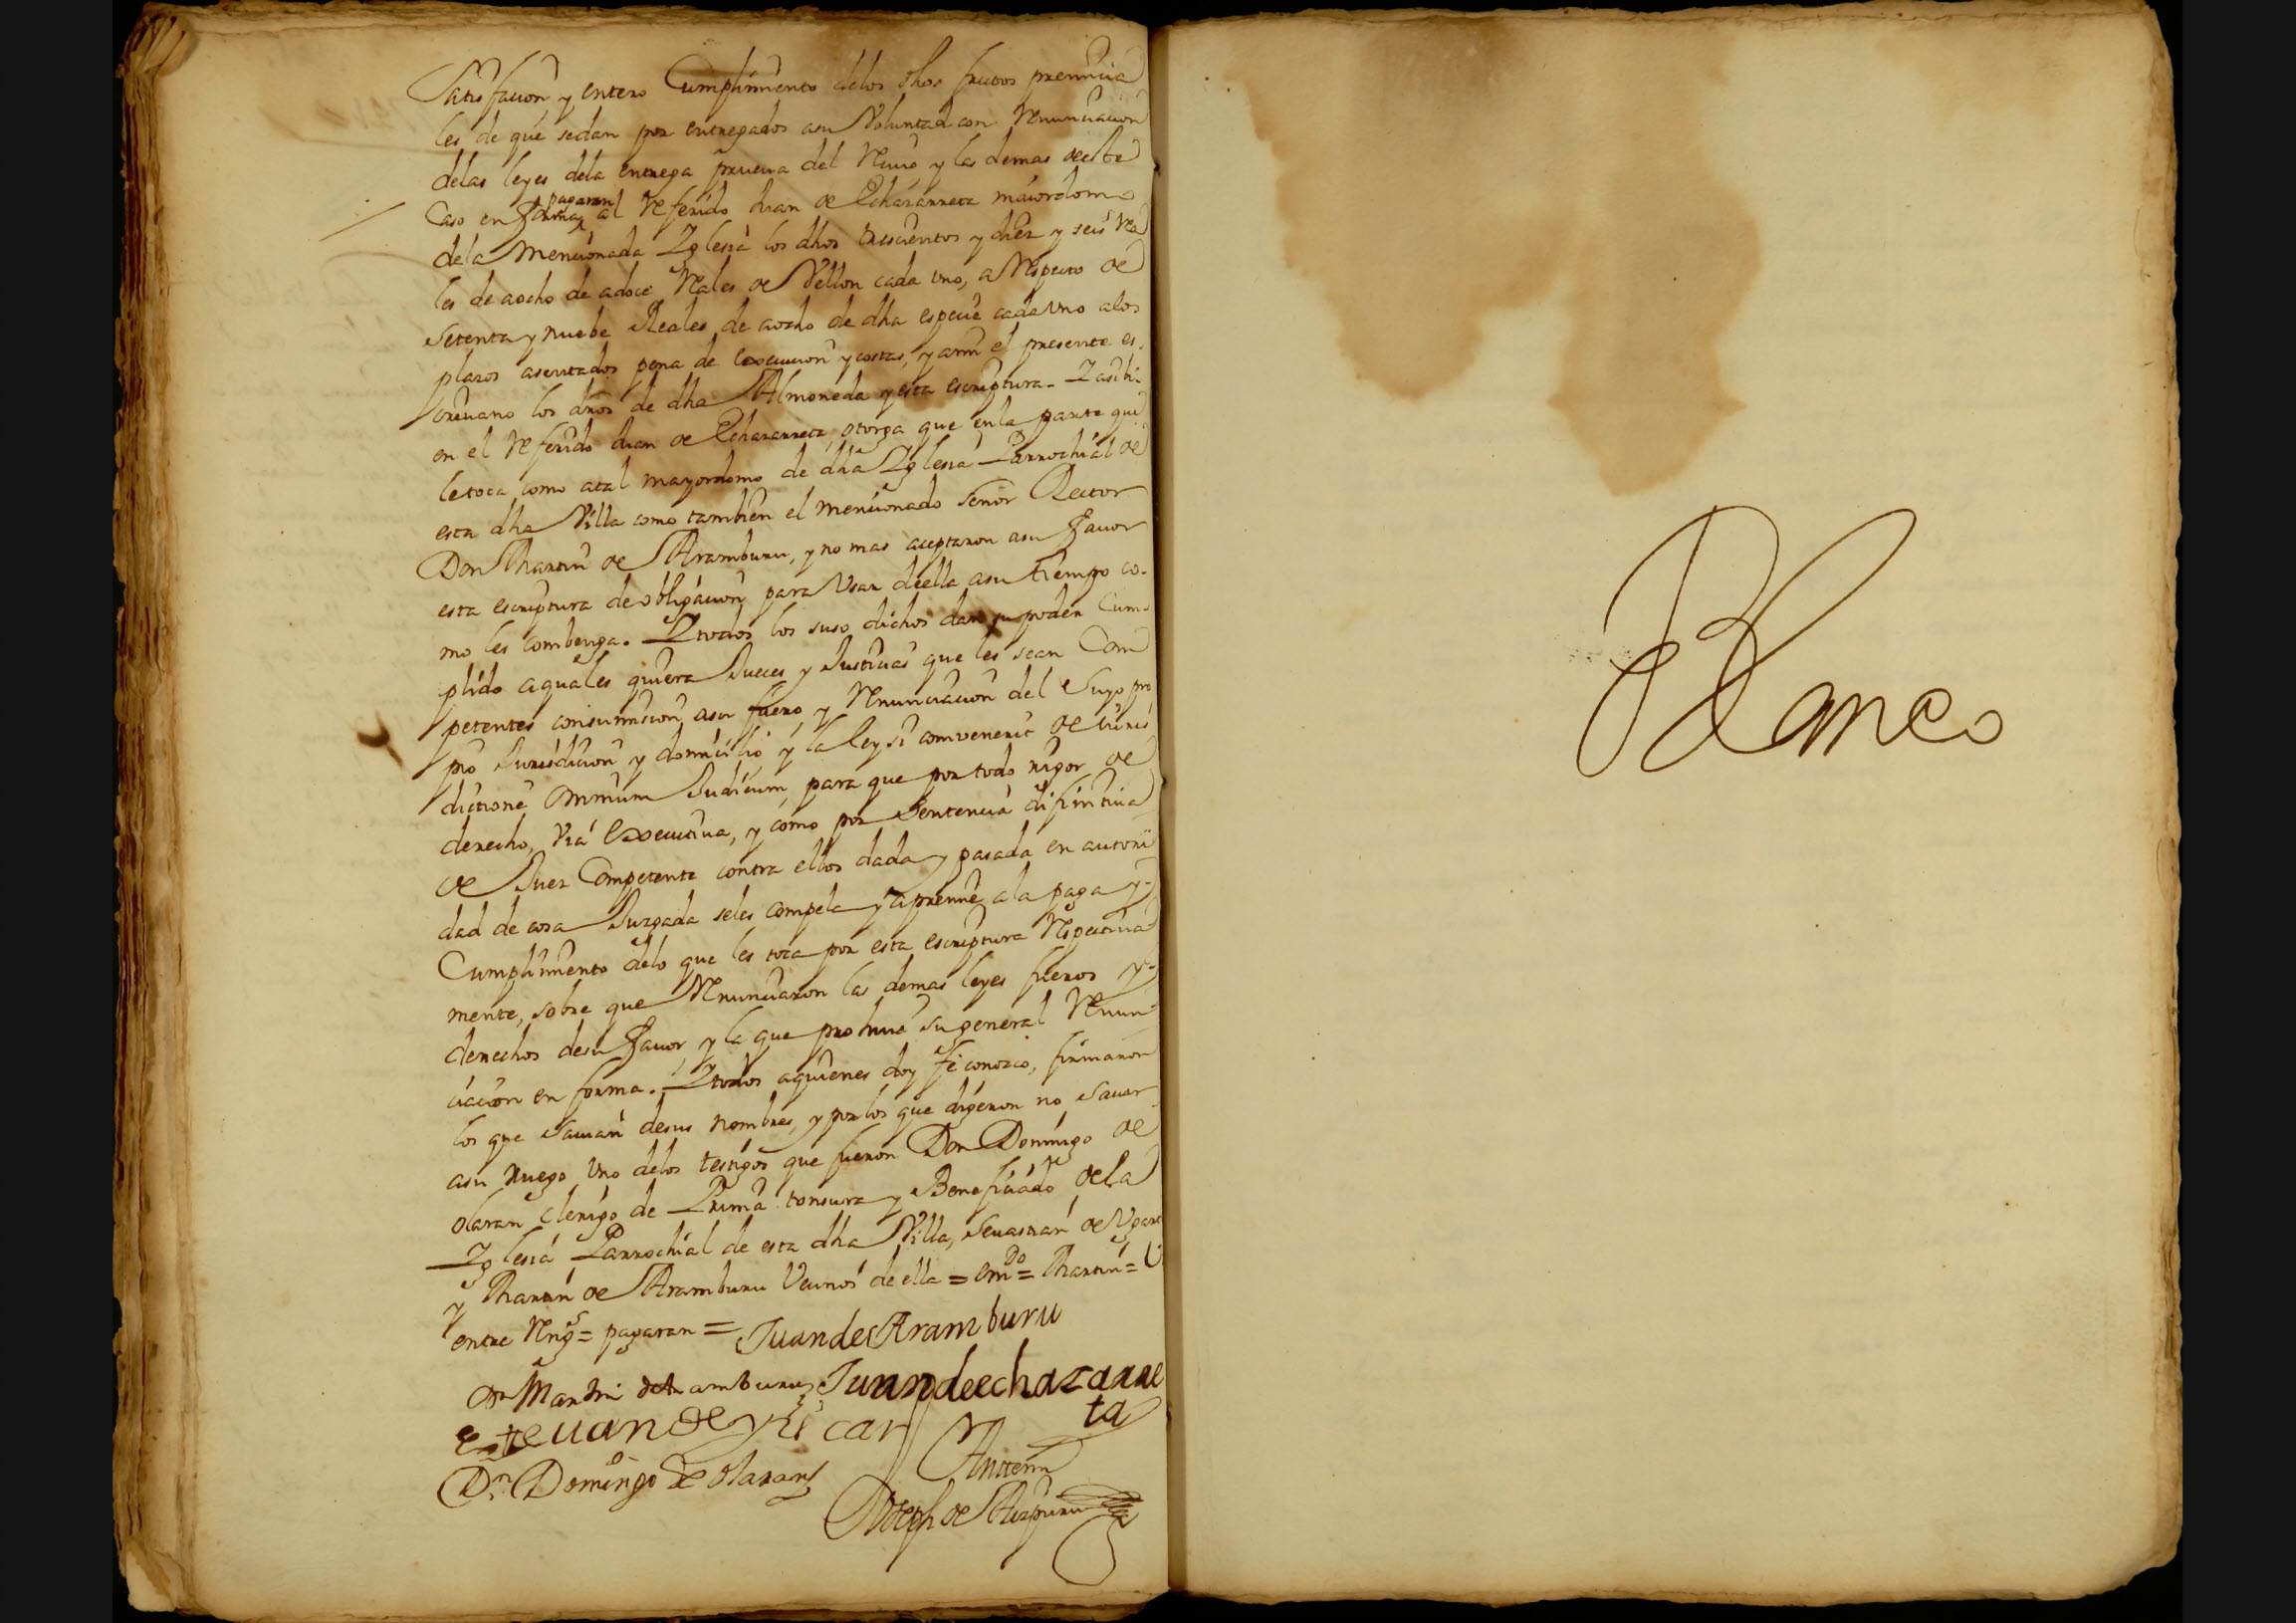 Satisfacion y entero Cumplimiento delos dhos frutos premicia
les de que sedan por entregados asu Voluntad con Renunciacion
delas leyes dela entrega prueua del Reciuo y las demas deeste
Caso en forma pagaran al Referido Juan de Echazarreta maiordomo
dela Mencionada Iglesia los dhos trescientos y diez y seis Rea
les de aocho de adoce Reales de Vellon cada uno, a Respecto de
setenta y nuebe Reales de aocho de dha especie cada Vno alos
plazos asentados pena de execucion y costas, y ami el presente es-
criuano los dros de dha Almoneda y esta escriptura. Y asibi-
en el Referido Juan de Echazarreta otorga que enla parte que
letoca como atal mayordomo de dha Iglesia Parrochial de
esta dha Villa como tambien el mencionado Señor Rector
Don Martin de Aramburu, y no mas aceptaron asu fauor
esta escriptura de obligacion para Vsar deella asu tiempo co-
mo les combenga. Y todos los suso dichos dan su poder Cum-
plido aquales quiera Jueces y Justicias que les sean Com
petentes consumision asu fuero y Renunciacion del Suyo pro
pio Jurisdicion y domicilio y la ley si convenerit de Juris
dictione omnium Judicum, para que por todo rigor de
derecho, Via executiua, y como por Sentencia difinitiua
de Juez Competente contra ellos dada y pasada en autori
dad de cosa Juzgada seles compela y apremie ala paga y-
Cumplimiento delo que les toca por esta escriptura Respectiua
mente, sobre que Renunciaron las demas leyes fueros y-
derechos desu fauor y la que prohiue su general Renun
ciacion en forma. Y todos aquienes doy fe conozco, firmaron
los que sauian desus nombres, y porlos que digeron no sauer
asu ruego Vno delos testigos que fueron Don Domingo de
olaran clerigo de Prima tonsura y Beneficiado dela
Iglesia Parrochial de esta dha Villa, Seuastian de Ugart
y Martin de Aramburu Vecinos de ella = emdo = Martin =
entre Rngs = pagaran = Juan de Aramburu
Dn Martin de Aramburu Juan de echazarre
ta
esteuan de
Dn Domingo de olaran
Antemi
Joseph de Aizpuru
Blanco